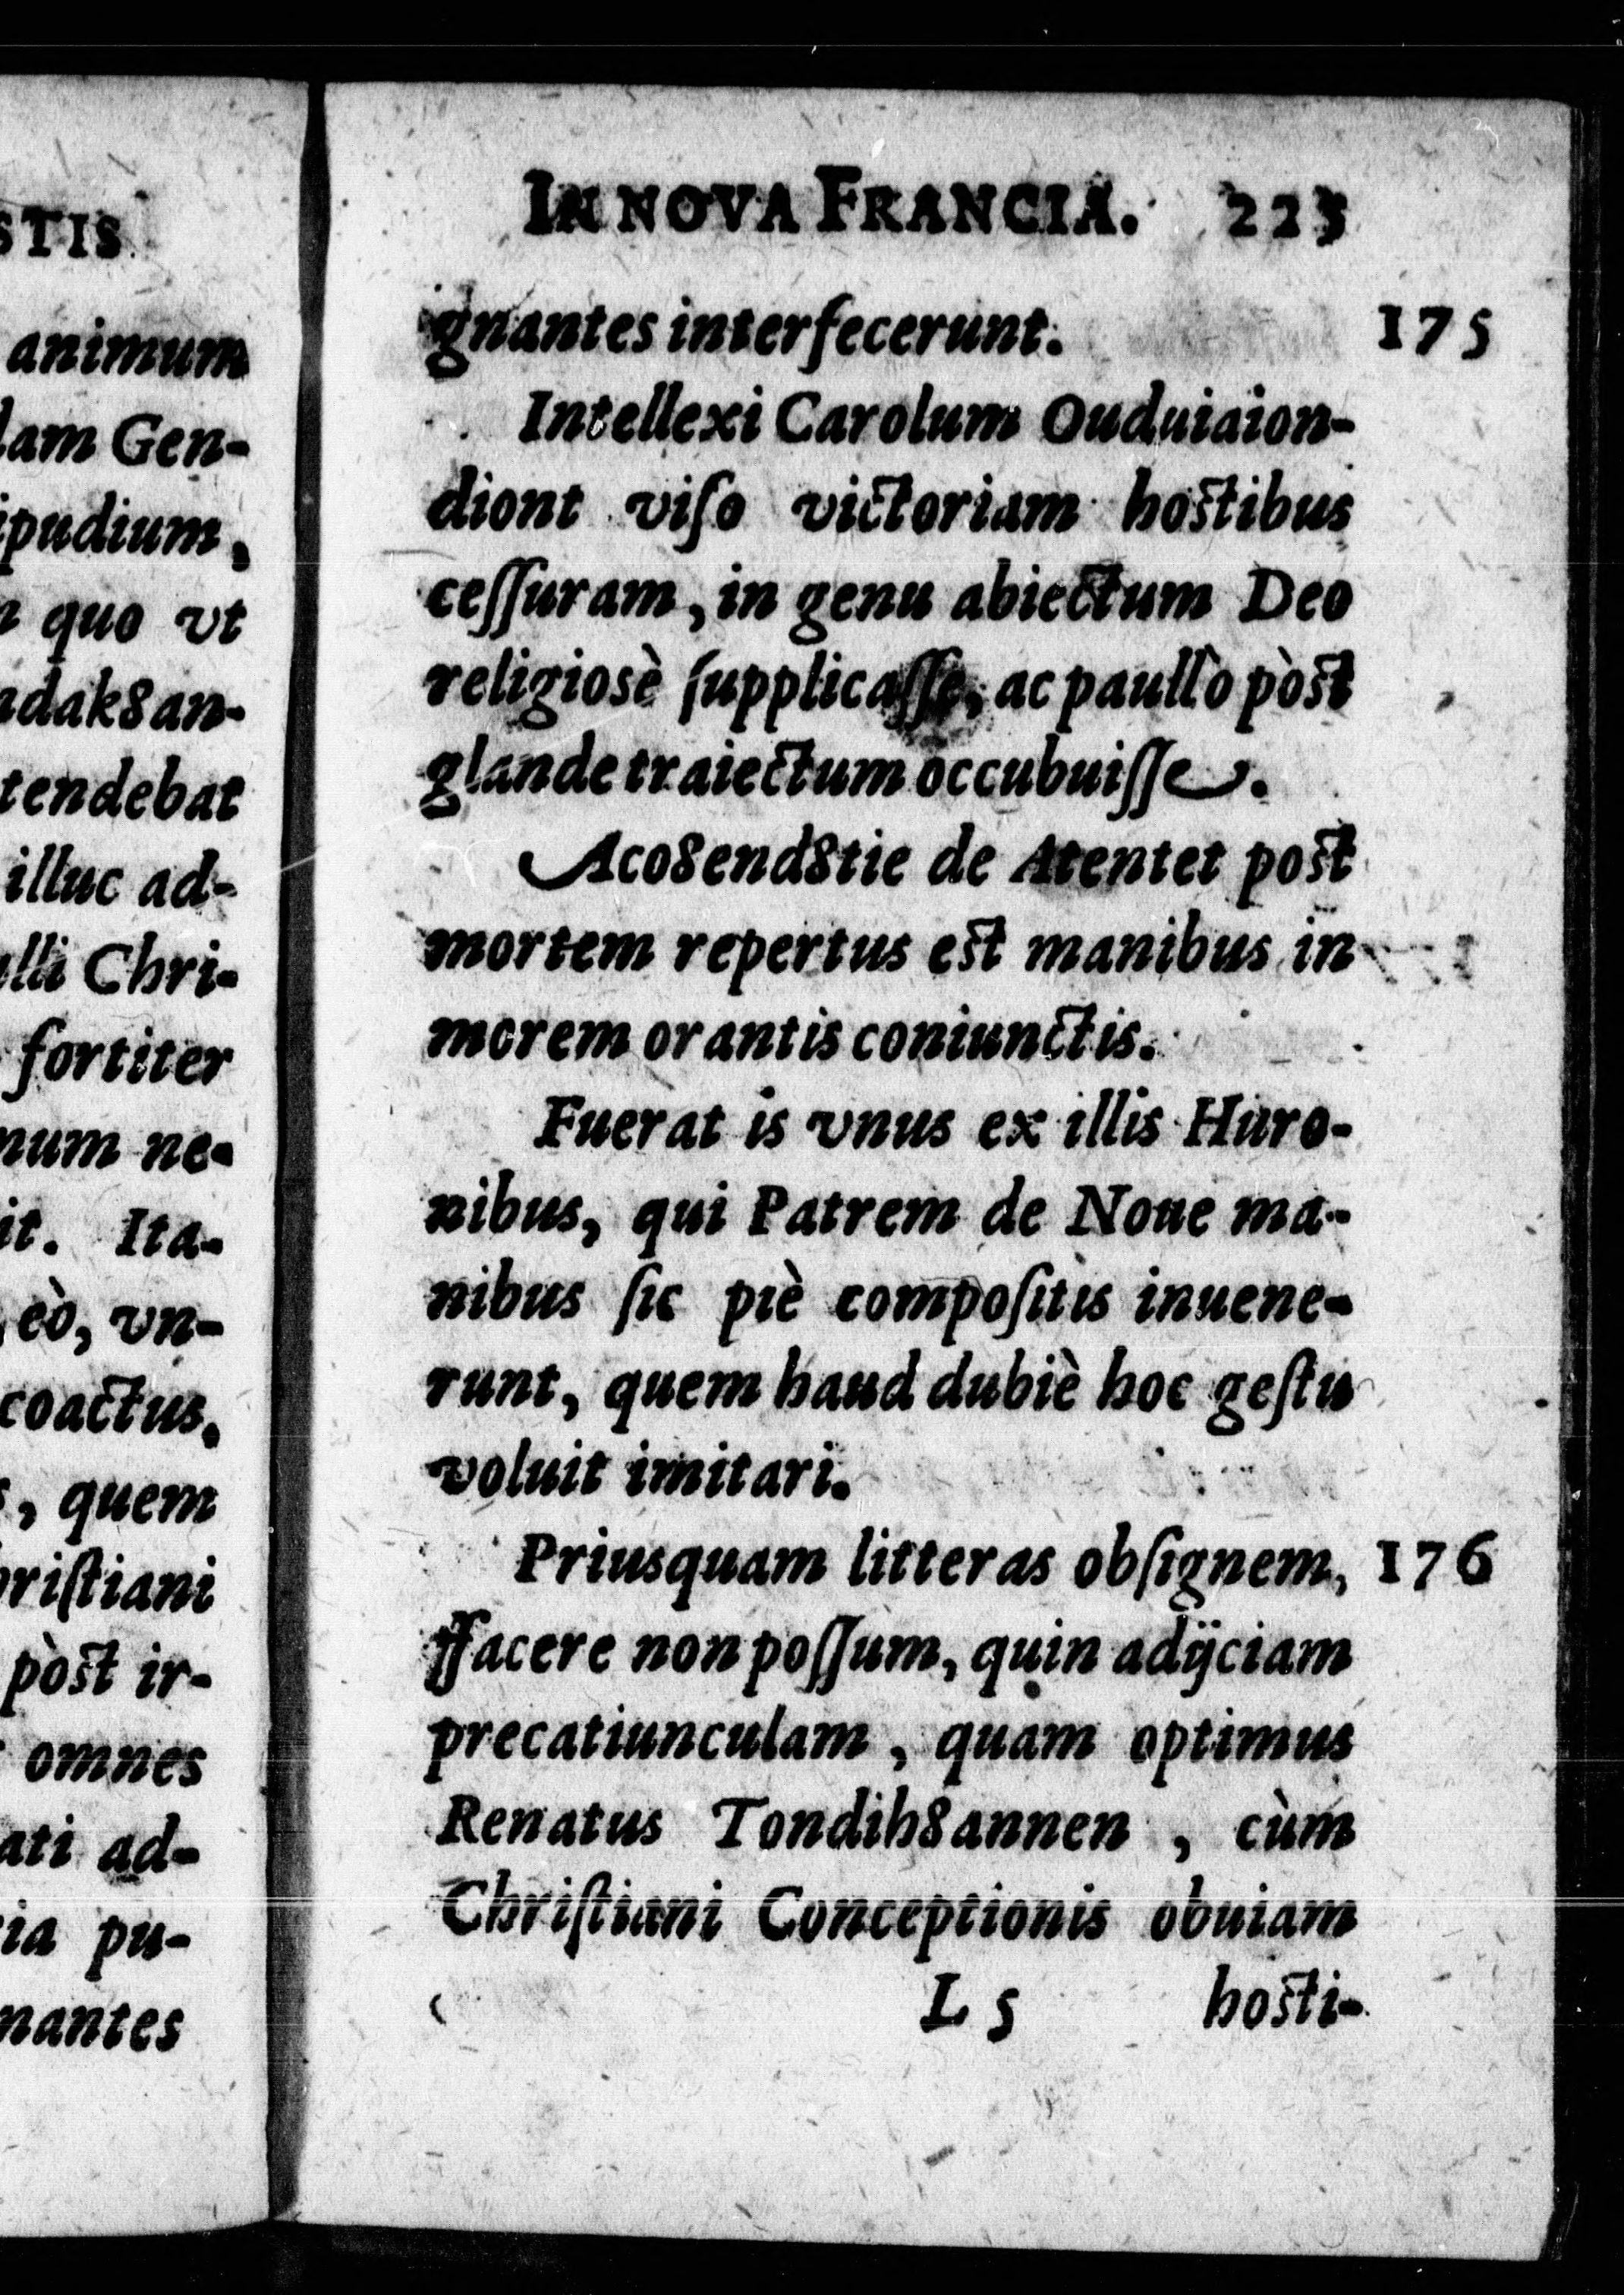 STIS
animum
lam Gen-
ipudium,
quo vt
ndak8an-
tendebat
illuc ad-
ulli Chri-
fortiter
num ne-
it. Ita-
eò, vn-
coactus,
, quem
hriſtiani
pòst ir-
omnes
ati ad-
ia pu-
nantes
IN NOVA FRANCIA. 223
gnantes interfecerunt. 175
Intellexi Carolum Ouduiaion-
diont viſo victoriam hostibus
ceſſuram, in genu abiectum Deo
religiosè ſupplicaſſe, ac paullò pòst
glande traiectum occubuiſſe.
Aco8end8tie de Atentet post
mortem repertus est manibus in
morem orantis coniunctis.
Fuerat is vnus ex illis Huro-
nibus, qui Patrem de Noue ma-
nibus ſic piè compoſitis inuene-
runt, quem haud dubiè hoc geſtu
voluit imitari.
Priusquam litteras obſignem, 176
ffacere non poſſum, quin adijciam
precatiunculam, quam optimus
Renatus Tondih8annen, cùm
Chriſtiani Conceptionis obuiam
L 5 hosti-